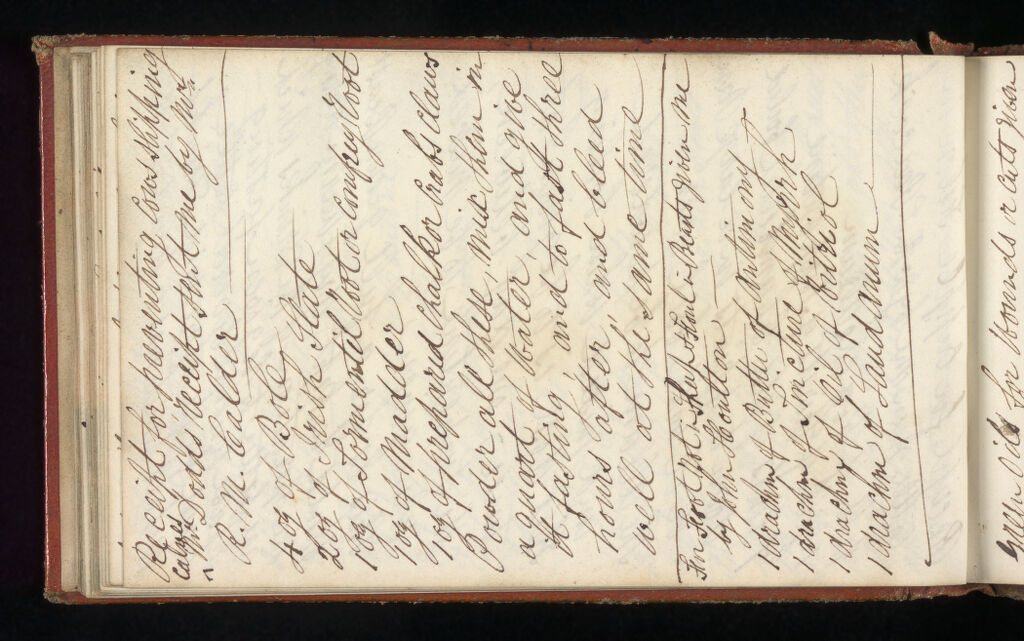 Receipt for preventing Cows slipping
Calves Mr Tods receipt sent me by Mr
R. M. Calder
4 oz of Bole
2 oz of Irish Slate
1 oz of Tormentil Root or Comfrey Root
1 oz of Madder
1 oz of prepared chalk or Crabs Claws
Powder all these, mix them in
a quart of water, and give
it fasting, and to fast three
hours after, and bleed
well at the same time
For Foot Rot in Sheep & Foul in Beasts given me
by John Hutton
1 drachm of Butter of antimony
1 drachm of Tincture of Myrrh
1 drachm of Oil of Vitriol
1 drachm of Laudanum
Green Oils for wounds or Cuts given